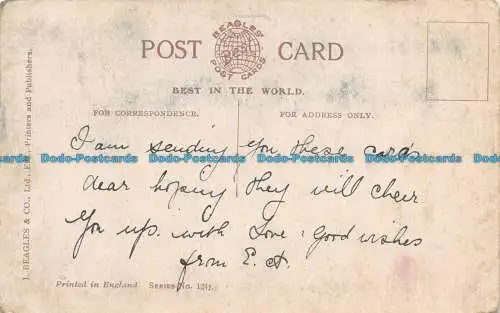 BEAGLES'
BEST
POST CARDS
POST CARD
BEST IN THE WORLD.
FOR CORRESPONDENCE.
FOR ADDRESS ONLY.
I am sending you these cards
Dodo-Postcards Dodo-Postcards Dodo-Postcards Dodo-Postcards
dear hoping they will cheer
Dodo-Postcards Dodo-Postcards Dodo-Postcards Dodo-Postcards
you up. with Love & Good wishes
from E. A.
Printed in England. SERIES No.
J. BEAGLES & CO., Ltd., E.C. Printers and Publishers.